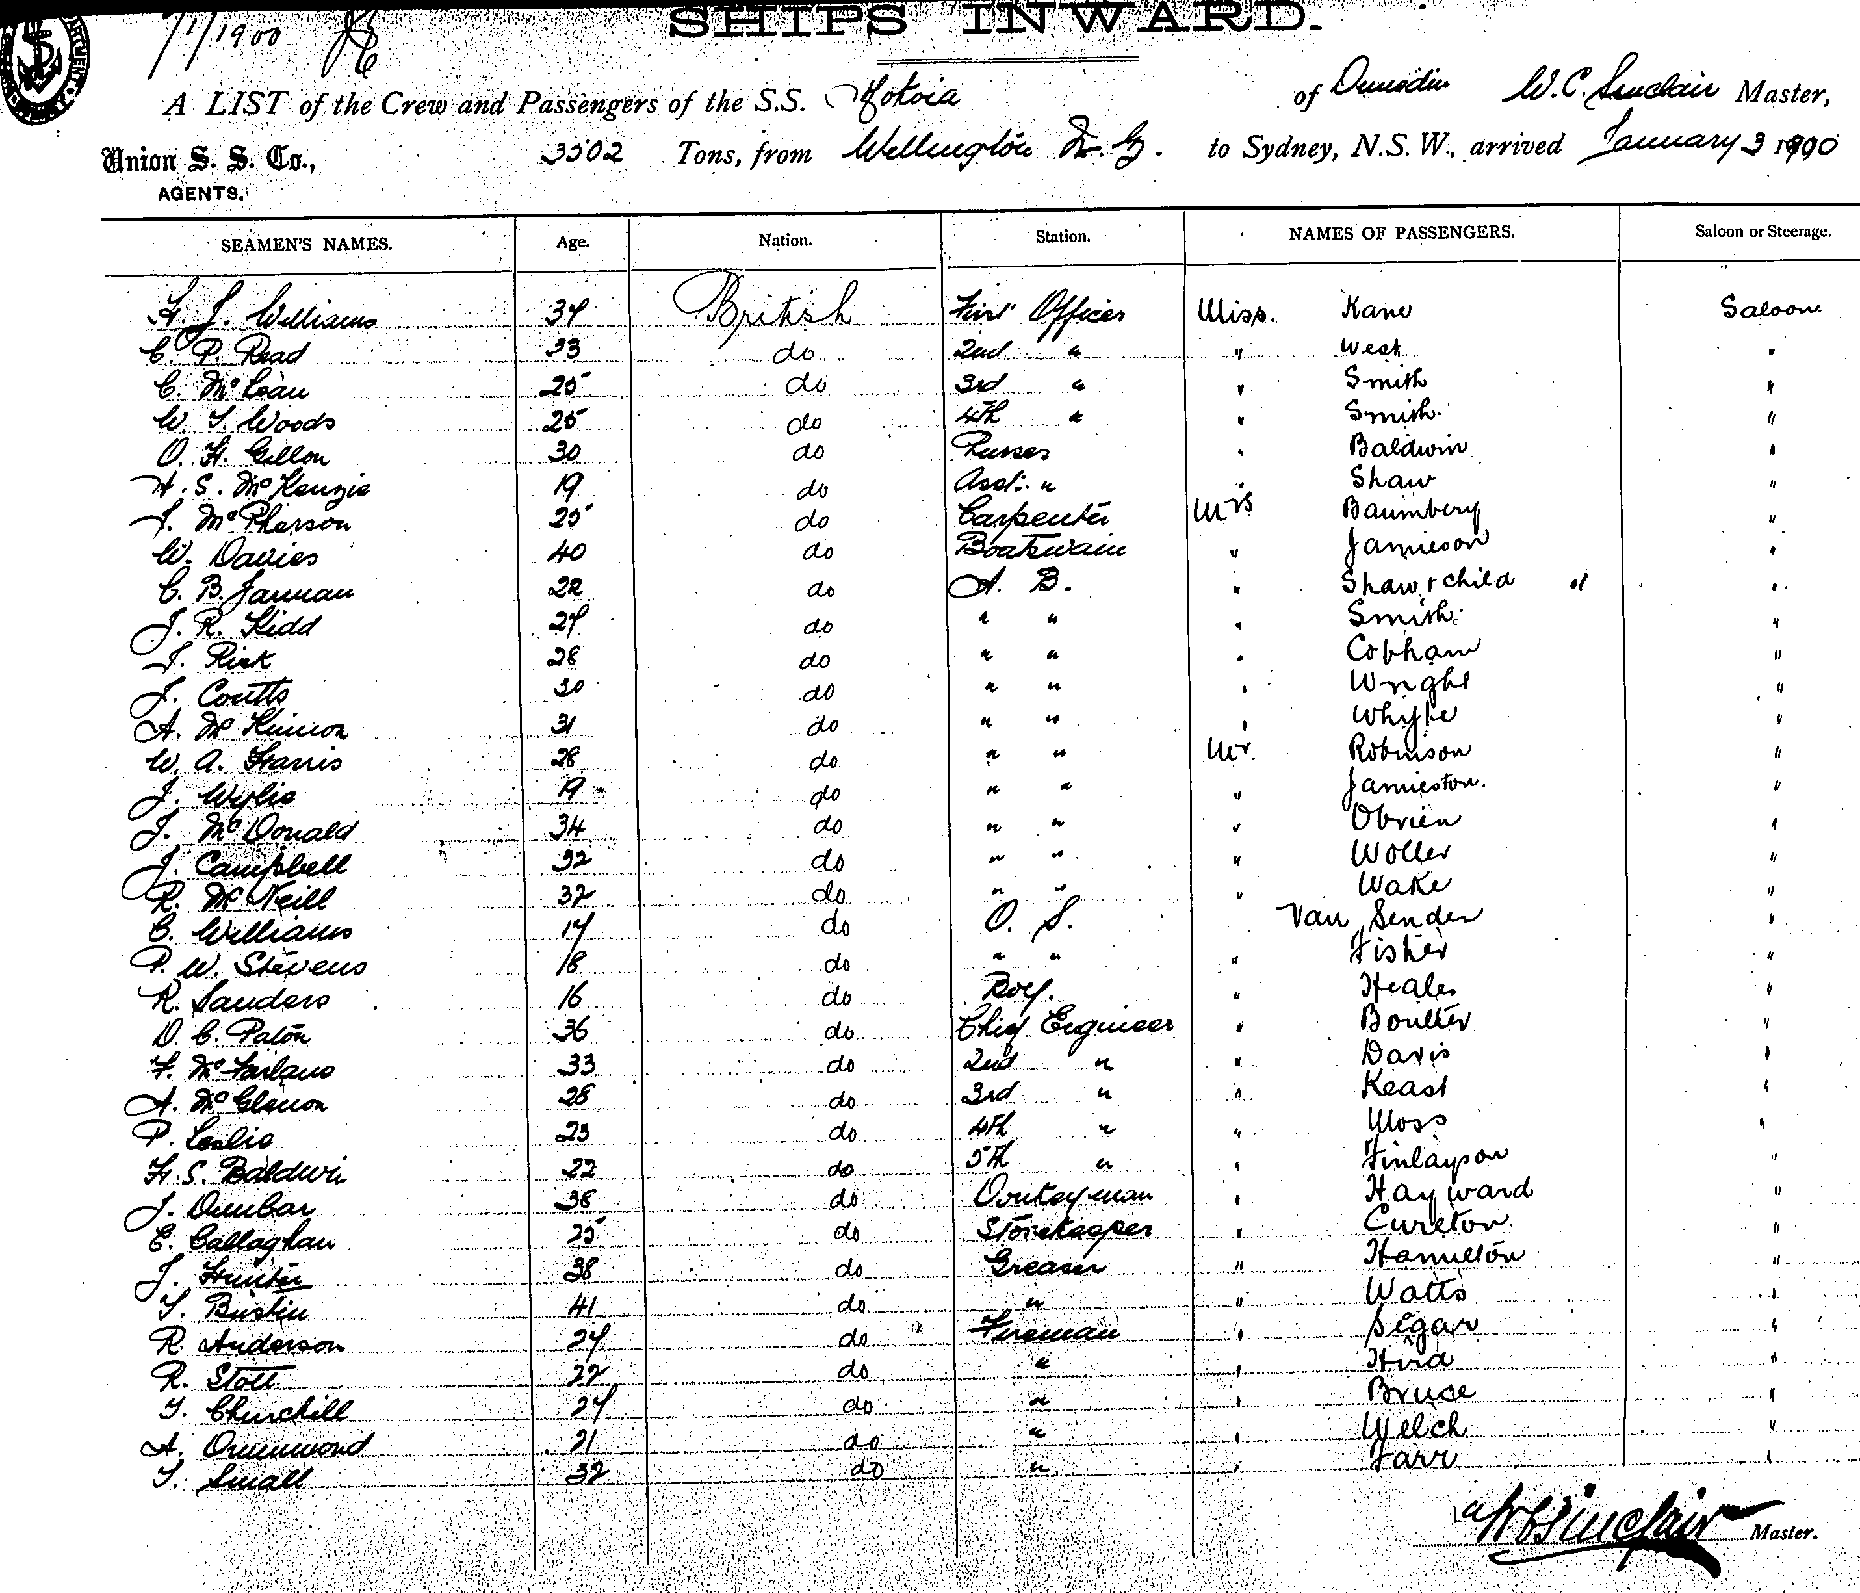 SHIPS INWARD.
7/1/1900
A LIST of the Crew and Passengers of the S.S. Mokoia of Dunedin W. C. Sinclair Master,
Union S. S. Co., 3502 Tons, from Wellington N. Z. to Sydney, N.S.W., arrived January 3 1900
AGENTS.
SEAMEN'S NAMES. Age. Nation. Station. NAMES OF PASSENGERS. Saloon or Steerage.
H. J. Williams 34 British First Officer Miss. Kane Saloon
C. P. Read 33 do 2nd " " West "
C. McLean 25 do 3rd " " Smith "
W. T. Woods 25 do 4th " " Smith "
O. H. Gillon 30 do Purser " Baldwin "
A. S. McKenzie 19 do Asst: " " Shaw "
J. McPherson 25 do Carpenter Mrs Baumbery "
W. Davies 40 do Boatswain " Jamieson "
C. B. Jarman 22 do A. B. " Shaw & child "
J. R. Kidd 27 do " " " Smith "
J. Rick 28 do " " " Cobham "
J. Coutts 30 do " " " Wright "
A. McKinnon 31 do " " " Whyte "
W. A. Harris 28 do " " Mr Robinson "
J. Wylie 19 do " " " Jamieston. "
J. McDonald 34 do " " " Obrien "
J. Campbell 32 do " " " Woller "
R. McNeill 32 do " " " Wake "
C. Williams 17 do O. S. Van Senden "
P. W. Stevens 18 do " " " Fisher "
R. Sanders 16 do Boy. " Heales "
D. C. Paton 36 do Chief Engineer " Boulter "
F. McFarlane 33 do 2nd " " Davis "
A. McGlenon 28 do 3rd " " Keast "
P. Leslie 23 do 4th " " Moss "
H. S. Baldwin 22 do 5th " " Finlayson "
J. Dunbar 38 do Donkeyman " Hayward "
E. Callaghan 25 do Storekeeper " Cureton "
J. Hunter 38 do Greaser " Hamilton "
T. Buskin 41 do " " Watts "
R. Anderson 24 do Fireman " Segar "
R. Stott 22 do " " Hird "
T. Churchill 24 do " " Bruce "
A. Drummond 21 do " " Welch "
T. Small 32 do " " Farr "
W C Sinclair Master.